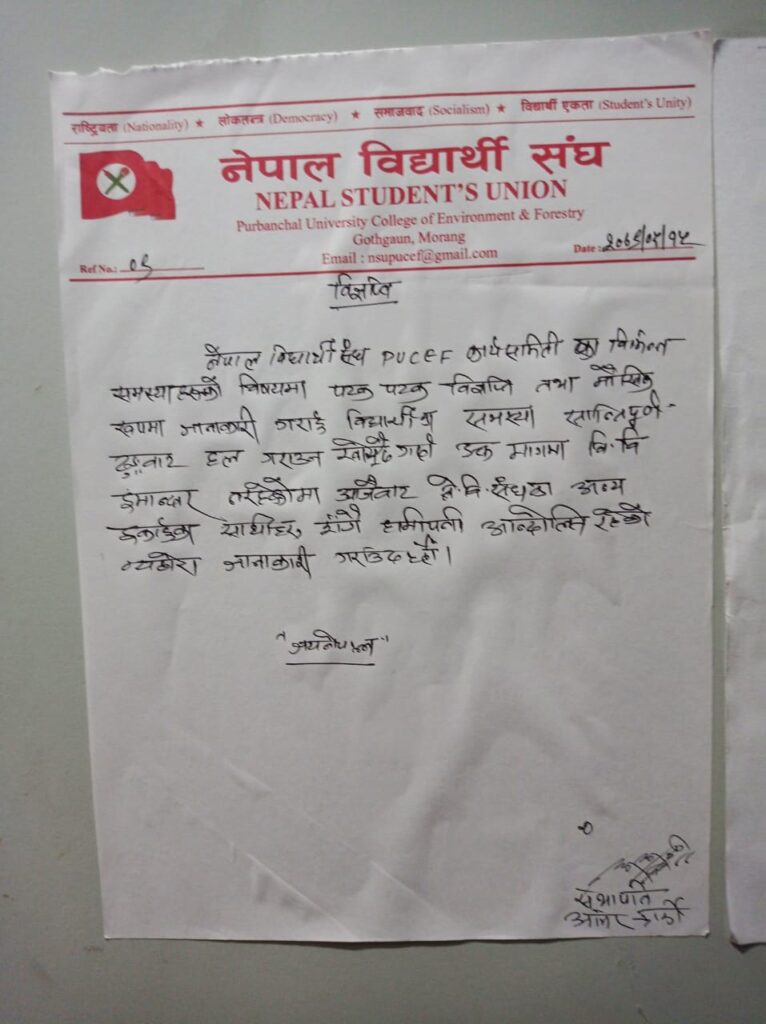 राष्ट्रियता (Nationality) ★ लोकतन्त्र (Democracy) ★ समाजवाद (Socialism) ★ विद्यार्थी एकता (Student's Unity)
नेपाल विद्यार्थी संघ
NEPAL STUDENT'S UNION
Purbanchal University College of Environment & Forestry
Gothgaun, Morang
Email : nsupucef@gmail.com
Ref No.:
Date :
विज्ञप्ति
नेपाल विद्यार्थी संघ PUCEF कार्यसमिती का विभिन्न
समस्याहरुको विषयमा पटक पटक विज्ञप्ति तथा मौखिक
रुपमा जानाकारी गराई विद्यार्थीका समस्या शान्तिपूर्ण
हल गराउन उक्त मागमा वि.वि
आजैबाट ने.वि.संघका अन्य
साथीहरु संगै आन्दोलित रहेको
व्यहोरा जानाकारी गराउदछौं।
"जयनेपाल"
सभापति